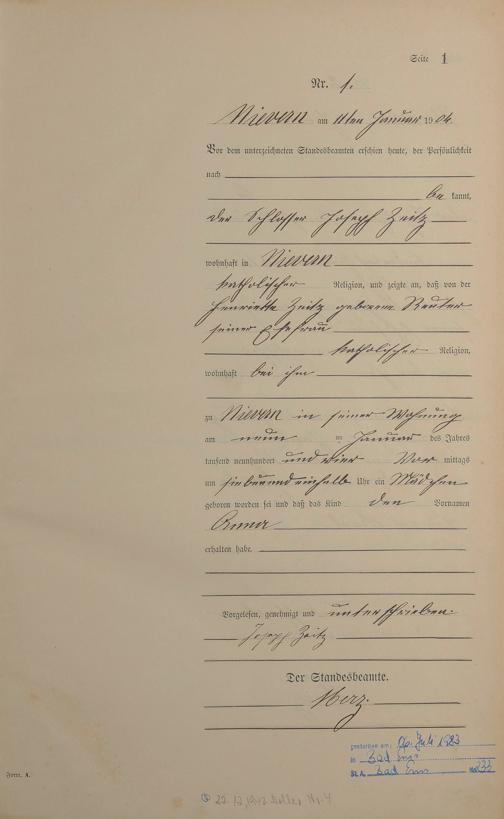 Seite 1
Nr. 1.
Nievern am 11ten Januar 1904.
Vor dem unterzeichneten Standesbeamten erschien heute, der Persönlichkeit
nach
be kannt,
der Schlosser Joseph Zeitz
wohnhaft in Nievern
katholischer Religion, und zeigte an, daß von der
Henriette Zeitz geborene Reuter
seiner Ehefrau
katholischer Religion,
wohnhaft bei ihm
zu Nievern in seiner Wohnung
am neun ten Januar des Jahres
tausend neunhundert und vier Vor mittags
um siebenundeinhalb Uhr ein Mädchen
geboren worden sei und daß das Kind den Vornamen
Anna
erhalten habe.
Vorgelesen, genehmigt und unterschrieben.
Joseph Zeitz
Der Standesbeamte.
Merz
gestorben am: 06. Juli 1983
in Bad Ems
St.A. Bad Ems No 233
Form. A.
22.12.1942 Nr. 4